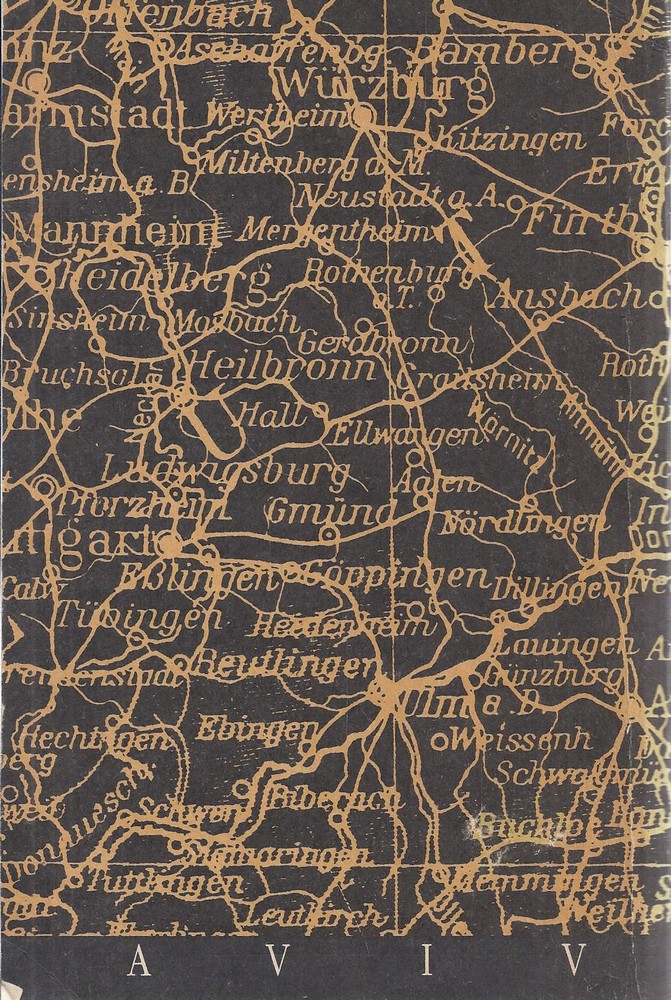 Offenbach
Aschaffenbg. Bamberg
Würzburg
armstadt Wertheim
Kitzingen
Miltenberg a. M.
ensheim a. B.
Neustadt a. A.
Fürth
Mannheim Mergentheim
Heidelberg Rothenburg
a. T.
Ansbach
Sinsheim Mosbach
Gerabronn
Bruchsal Heilbronn
Crailsheim
Roth
Hall
Ellwangen
Wörnitz
Altmühl
Ludwigsburg
Aalen
Pforzheim Gmünd
Nördlingen
ttgart
Eßlingen Göppingen
Dillingen
Tübingen
Heidenheim
Lauingen
Reutlingen
Günzburg
reudenstadt
Ulm a. D.
Ebingen
Weissenh
Hechingen
berg
Schwabmü
Biberach
Schwen
Buchloe
Sigmaringen
Tuttlingen
Memmingen
Leutkirch
Weilhe
A V I V